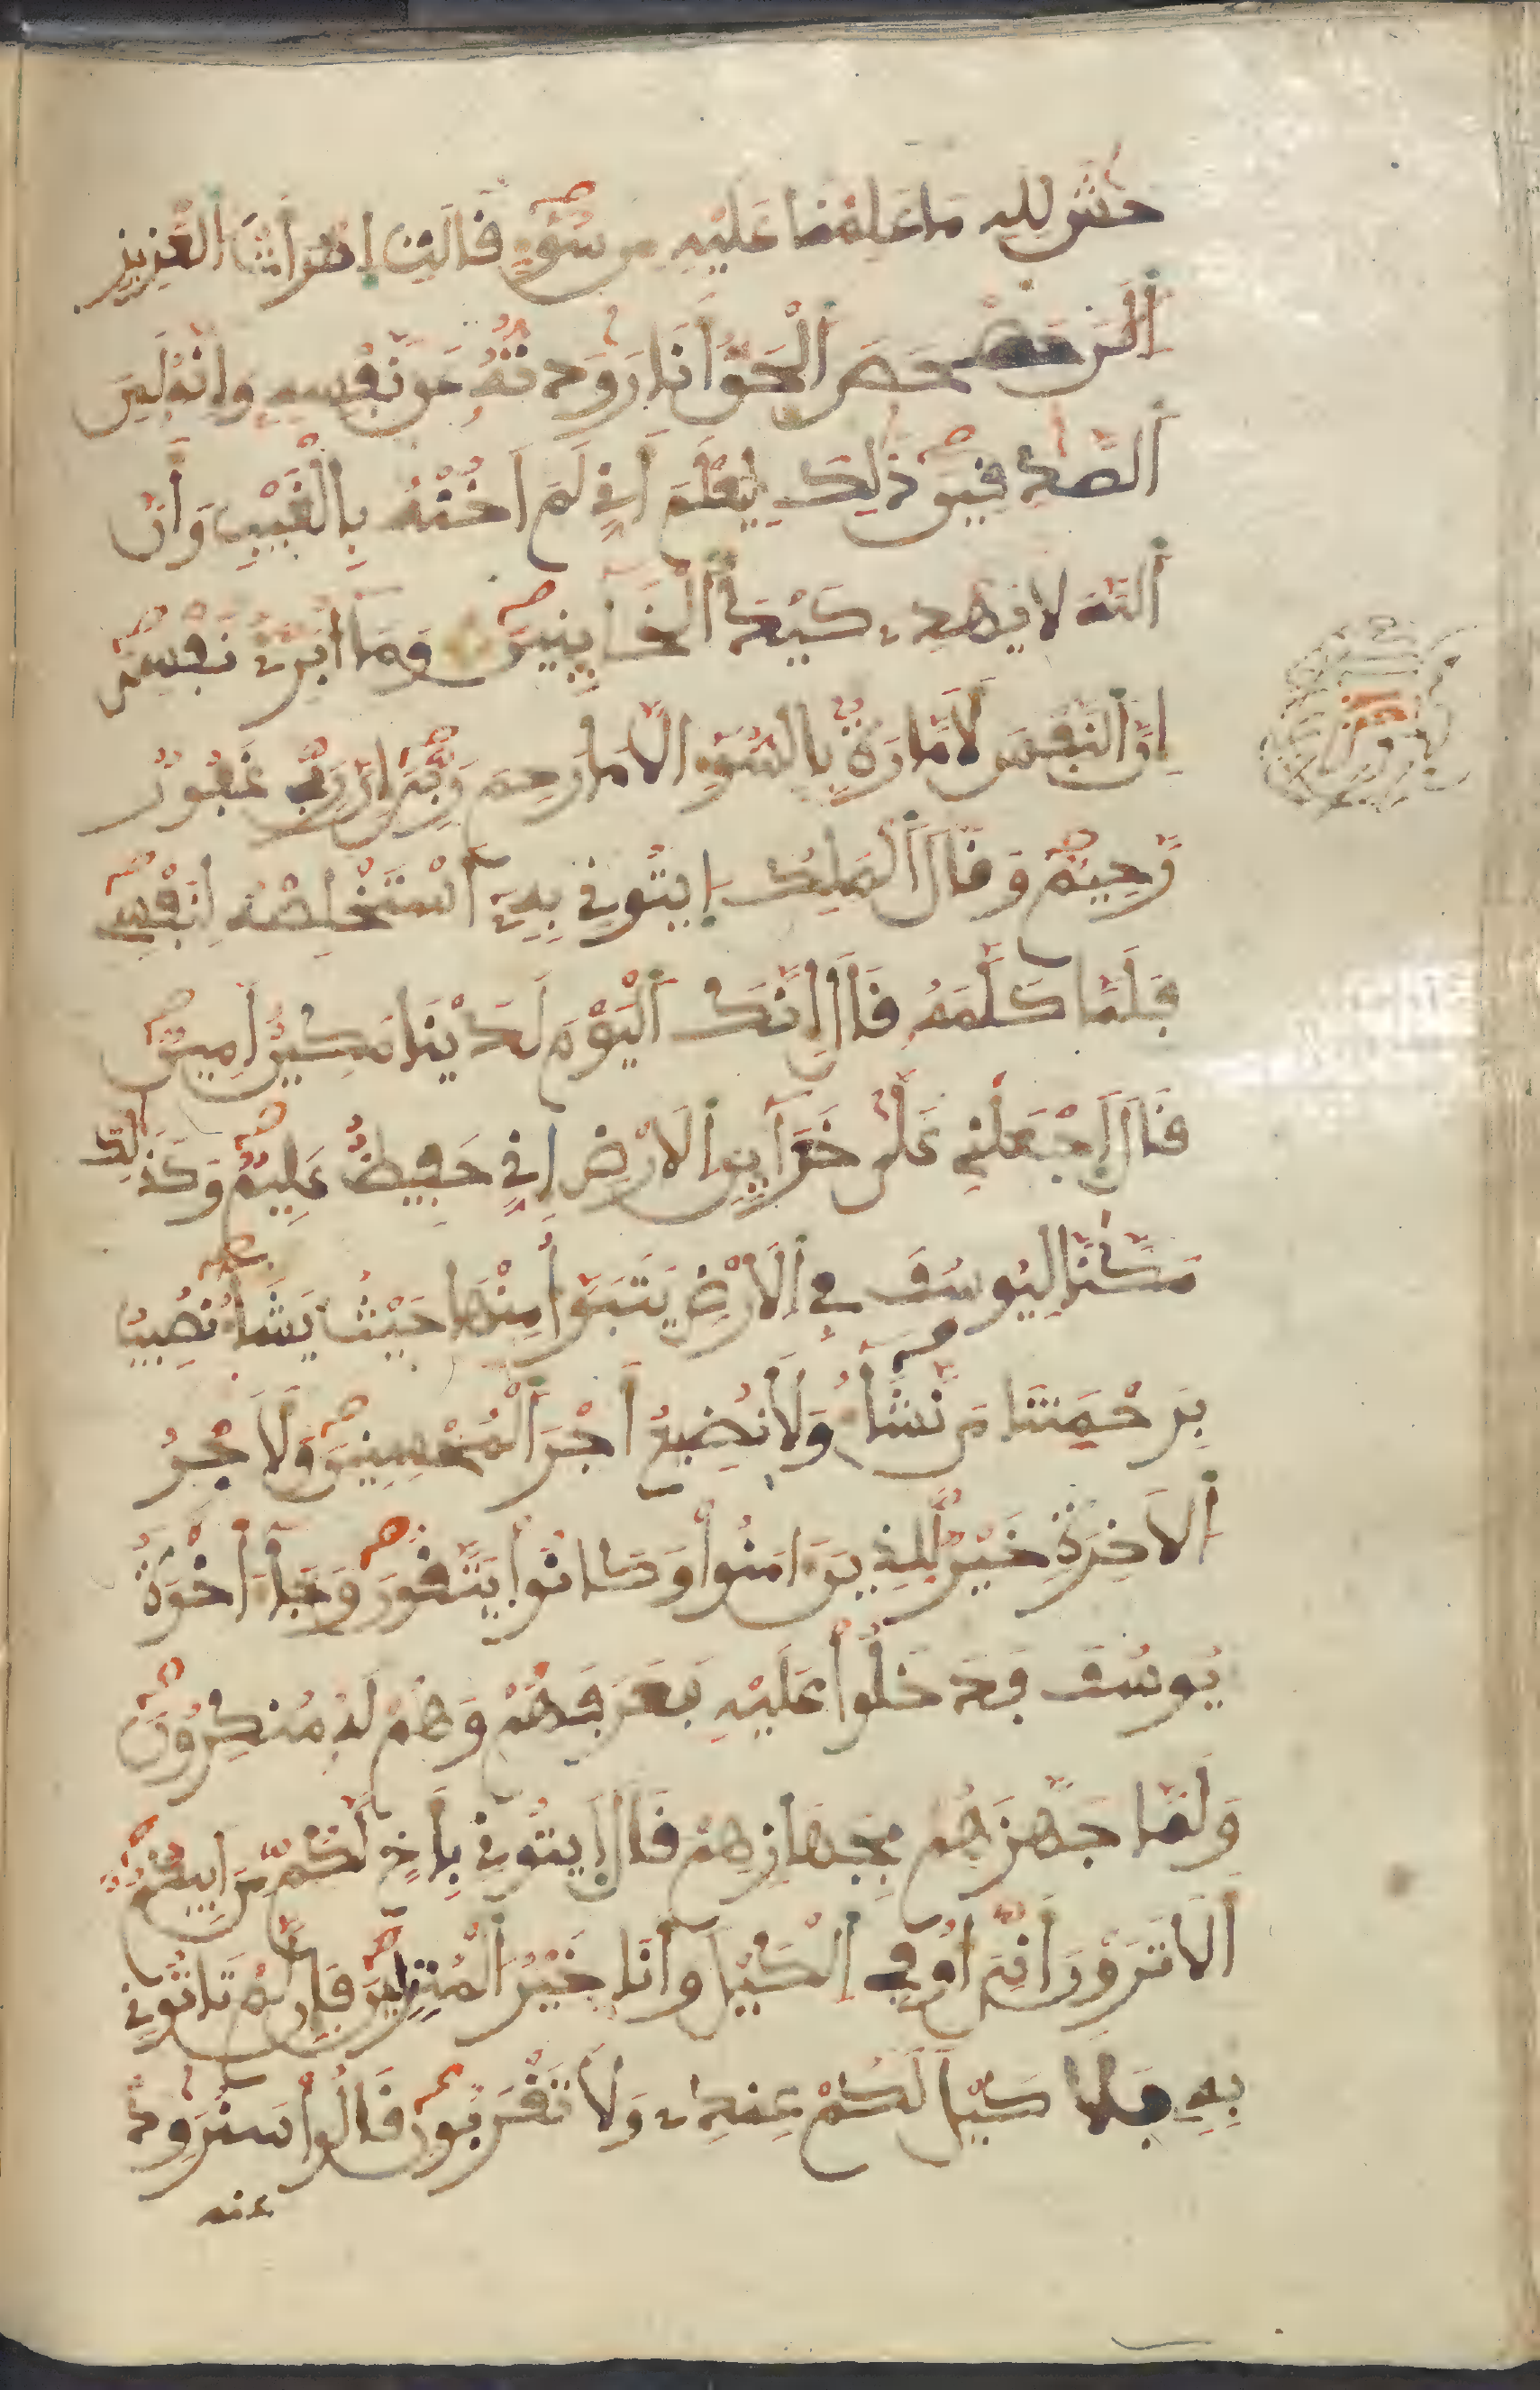 حَٰشَ لِلهِ مَا عَلِمْنَا عَلَيْهِ مِن سُوٓءٍ قَالَتِ اِمْرَأَتُ الْعَزِيزِ
اَلَٰنَ حَصْحَصَ اَلْحَقُّ أَنَا رَٰوَدتُّهُ عَن نَّفْسِهِ وَإِنَّهُ لَمِنَ
اَلصَّٰدِقِينَ ذَٰلِكَ لِيَعْلَمَ أَنِّي لَمَ اَخُنْهُ بِالْغَيْبِ وَأَنَّ
اَللَّهَ لَا يَهْدِے كَيْدَ اَلْخَآيِنِينَ وَمَآ أُبَرِّئُ نَفْسِيَ
إِنَّ اَلنَّفْسَ لَأَمَّارَةٌ بِالسُّوٓءِ الَّا مَا رَحِمَ رَبِّيَ إِنَّ رَبِّي غَفُورٌ
رَّحِيمٌ وَقَالَ اَلْمَلِكُ اِيتُونِي بِهِۦٓ أَسْتَخْلِصْهُ لِنَفْسِي
فَلَمَّا كَلَّمَهُ قَالَ إِنَّكَ اَلْيَوْمَ لَدَيْنَا مَكِينٌ أَمِينٌ
قَالَ اَجْعَلْنِي عَلَىٰ خَزَآيِنِ اِلَارْضِ إِنِّي حَفِيظٌ عَلِيمٌ وَكَذَٰلِكَ
مَكَّنَّا لِيُوسُفَ فِي اِلَارْضِ يَتَبَوَّأُ مِنْهَا حَيْثُ يَشَآءُ نُصِيبُ
بِرَحْمَتِنَا مَن نَّشَآءُ وَلَا نُضِيعُ أَجْرَ اَلْمُحْسِنِينَ وَلَأَجْرُ
اُلَاخِرَةِ خَيْرٌ لِّلذِينَ ءَامَنُواْ وَكَانُواْ يَتَّقُونَ وَجَآءَ اخْوَةُ
يُوسُفَ فَدَخَلُواْ عَلَيْهِ فَعَرَفَهُمْ وَهُمْ لَهُ مُنكِرُونَ
وَلَمَّا جَهَّزَهُم بِجَهَازِهِمْ قَالَ اَيتُونِي بِأَخٍ لَّكُم مِّنَ اَبِيكُمُۥٓ
أَلَا تَرَوْنَ أَنِّيَ أُوفِي اِلْكَيْلَ وَأَنَا خَيْرُ اُلْمُنزِلِينَ فَإِن لَّمْ تَاتُونِي
بِهِۦ فَلَا كَيْلَ لَكُمْ عِندِے وَلَا تَقْرَبُونِ قَالُواْ سَنُرَٰوِدُ
عنه